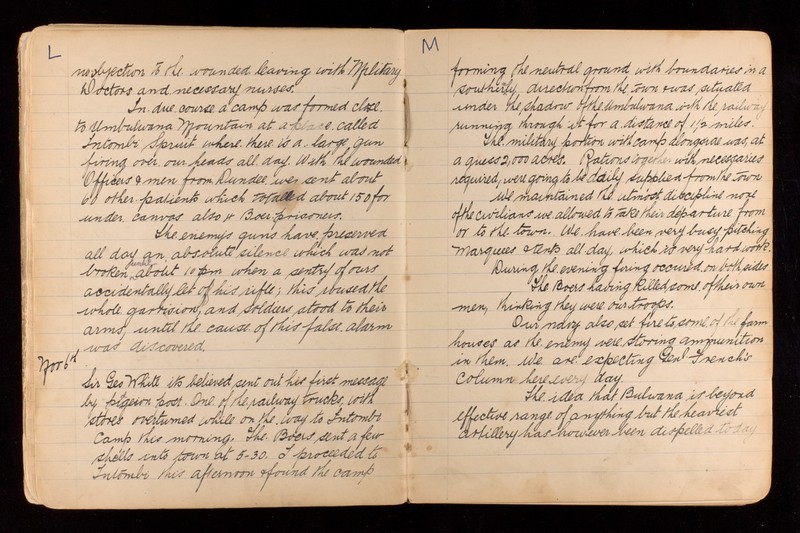 L
no objection to the wounded leaving with Military
Doctors and necessary nurses.
In due course a camp was formed close
to Umbulwana Mountain at a place called
Intombi Spruit where there is a large gun
firing over our heads all day. With the wounded
Officers & men from Dundee were sent about
60 other patients which totalled about 150 for
under canvas also 4 Boer prisoners.
The enemy's guns have preserved
all day an absolute silence which was not
broken until about 10 pm when a sentry of ours
accidentally let of his rifle; this roused the
whole garrison, and soldiers stood to their
arms until the cause of this false alarm
was discovered.
Nov 6th
Sir Geo White its believed sent out his first message
by pigeon post. One of the railway trucks, with
stores overturned while on the way to Intombi
Camp this morning. The Boers sent a few
shells into town at 5-30. I proceeded to
Intombi this afternoon & found the camp
M
forming the neutral ground with boundaries in a
southerly direction from the town & was situated
under the shadow of the Umbulwana with the railway
running through it for a distance of 1½ miles.
The military portion with camp alongside was at
a guess 2,000 acres. Rations together with necessaries
required, were going to be daily supplied from the town
We maintained the utmost discipline none
of the civilians we allowed to take their departure from
or to the town. We have been very busy pitching
Marquees & tents all day which is very hard work.
During the evening firing occured on both sides
The Boers having killed some of their own
men, thinking they were our troops.
Our navy also set fire to some of the farm
houses as the enemy were storing ammunition
in them. We are expecting Genl French's
Column here every day.
The idea that Bulwana is beyond
effective range of anything but the heaviest
artillery has however been dispelled today